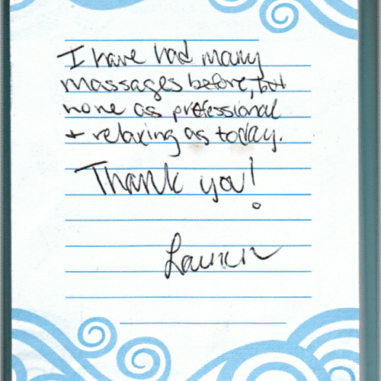 I have had many
massages before, but
none as professional
+ relaxing as today.
Thank you!
Lauren